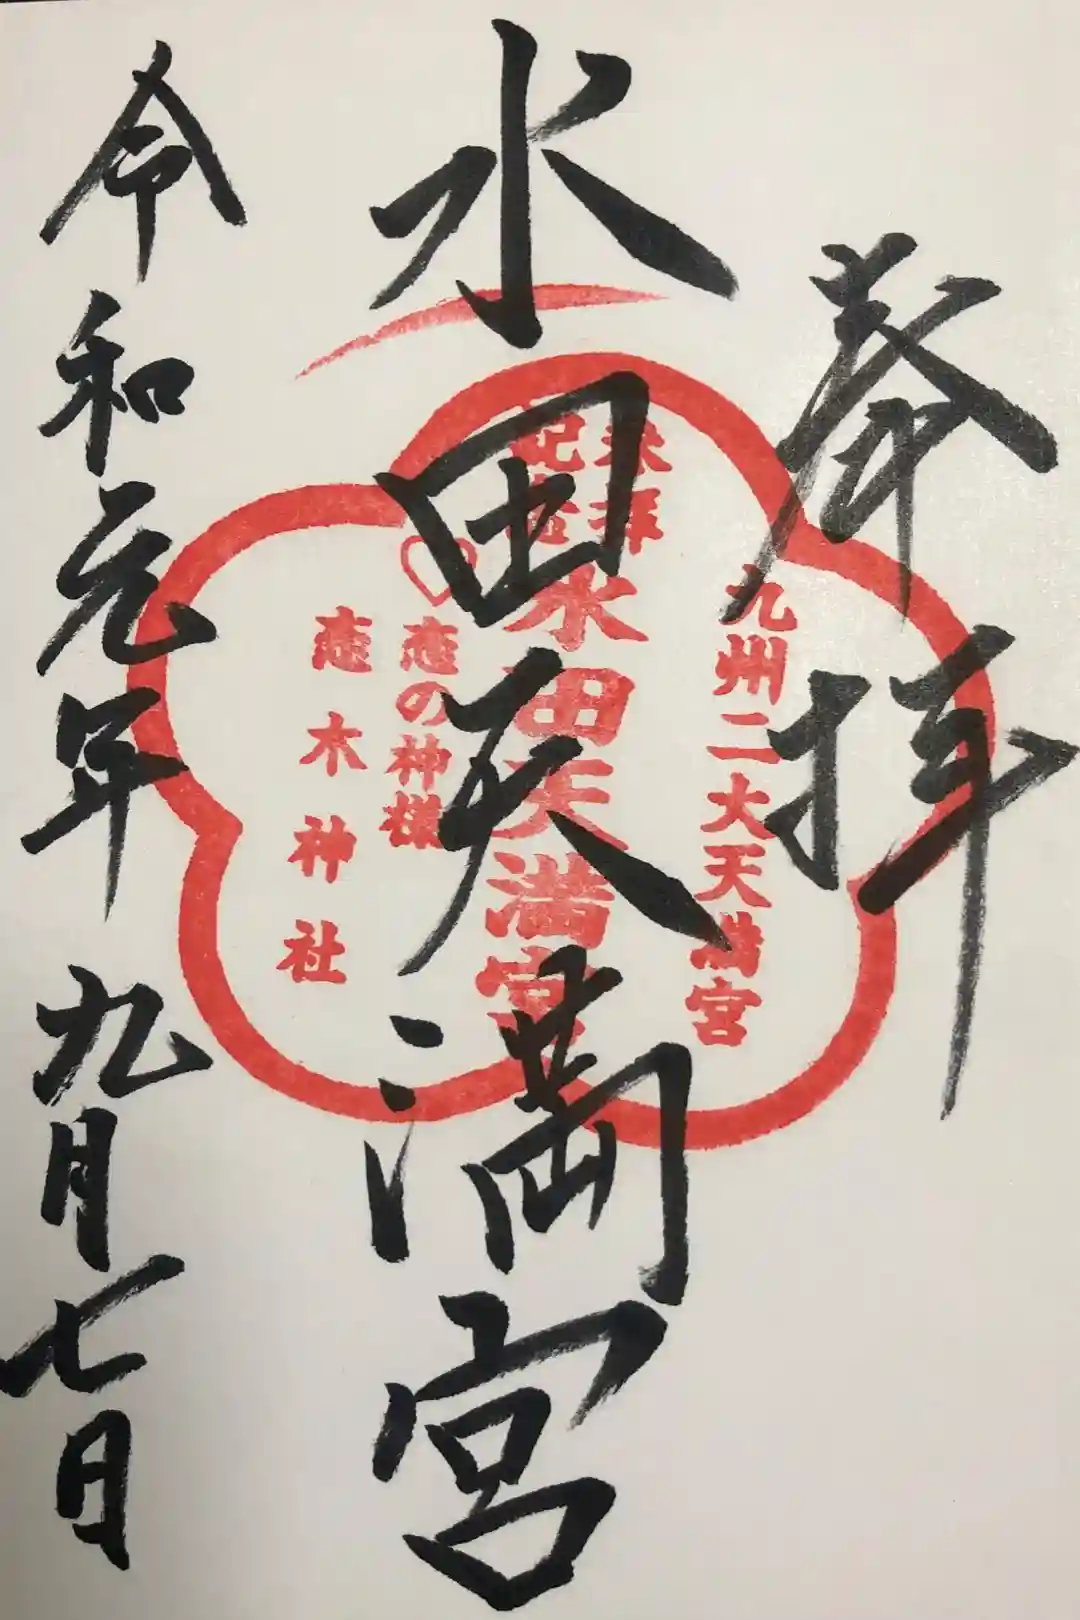 奉拝
水田天満宮
令和元年九月七日
九州二大天満宮
来拝
記念
水田天満宮
♡恋の神様
恋木神社